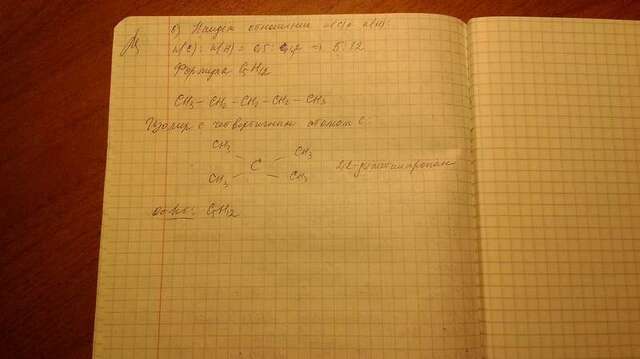 6) Найдем отношение n(C) и n(H):
n(C) : n(H) = 0,5 : 1,2 → 5:12
Формула C5H12
CH3 — CH2 — CH2 — CH2 — CH3
Изомер с четвертичным атомом C:
CH3 CH3
C 2,2-диметилпропан
CH3 CH3
Ответ: C5H12